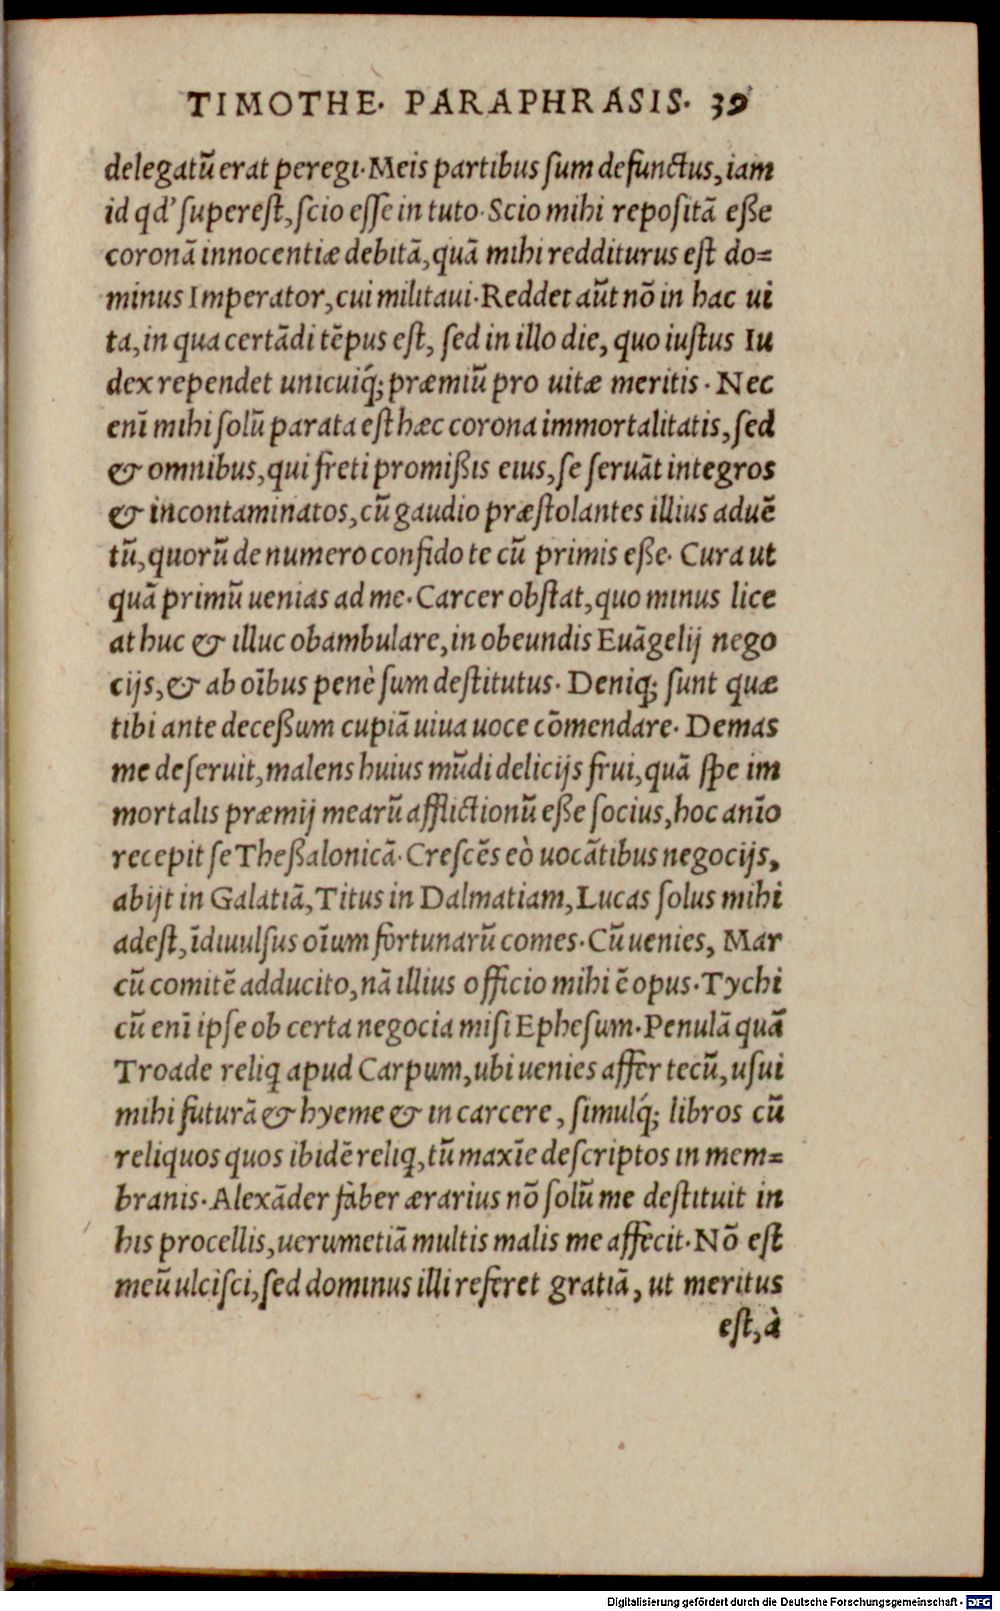 TIMOTHE. PARAPHRASIS. 39
delegatū erat peregi. Meis partibus sum defunctus, iam
id qd' superest, scio esse in tuto. Scio mihi repositā eße
coronā innocentiæ debitā, quā mihi redditurus est do=
minus Imperator, cui militaui. Reddet aūt nō in hac ui
ta, in qua certādi tēpus est, sed in illo die, quo iustus Iu
dex rependet unicuiq́; præmiū pro uitæ meritis. Nec
enī mihi solū parata est hæc corona immortalitatis, sed
& omnibus, qui freti promißis eius, se seruāt integros
& incontaminatos, cū gaudio præstolantes illius aduē
tū, quorū de numero confido te cū primis eße. Cura ut
quā primū uenias ad me. Carcer obstat, quo minus lice
at huc & illuc obambulare, in obeundis Euāgelij nego
cijs, & ab oībus penè sum destitutus. Deniq; sunt quæ
tibi ante deceßum cupiā uiua uoce cōmendare. Demas
me deseruit, malens huius mūdi delicijs frui, quā spe im
mortalis præmij mearū afflictionū eße socius, hoc anīo
recepit se Theßalonicā. Crescēs eò uocātibus negocijs,
abijt in Galatiā, Titus in Dalmatiam, Lucas solus mihi
adest, īdiuulsus oīum fortunarū comes. Cū uenies, Mar
cū comitē adducito, nā illius officio mihi ē opus. Tychi
cū enī ipse ob certa negocia misi Ephesum. Penulā quā
Troade reliq apud Carpum, ubi uenies affer tecū, usui
mihi futurā & hyeme & in carcere, simulq́; libros cū
reliquos quos ibidē reliq, tū maxīe descriptos in mem=
branis. Alexāder faber ærarius nō solū me destituit in
his procellis, uerumetiā multis malis me affecit. Nō est
meū ulcisci, sed dominus illi referet gratiā, ut meritus
est, à
Digitalisierung gefördert durch die Deutsche Forschungsgemeinschaft - DFG